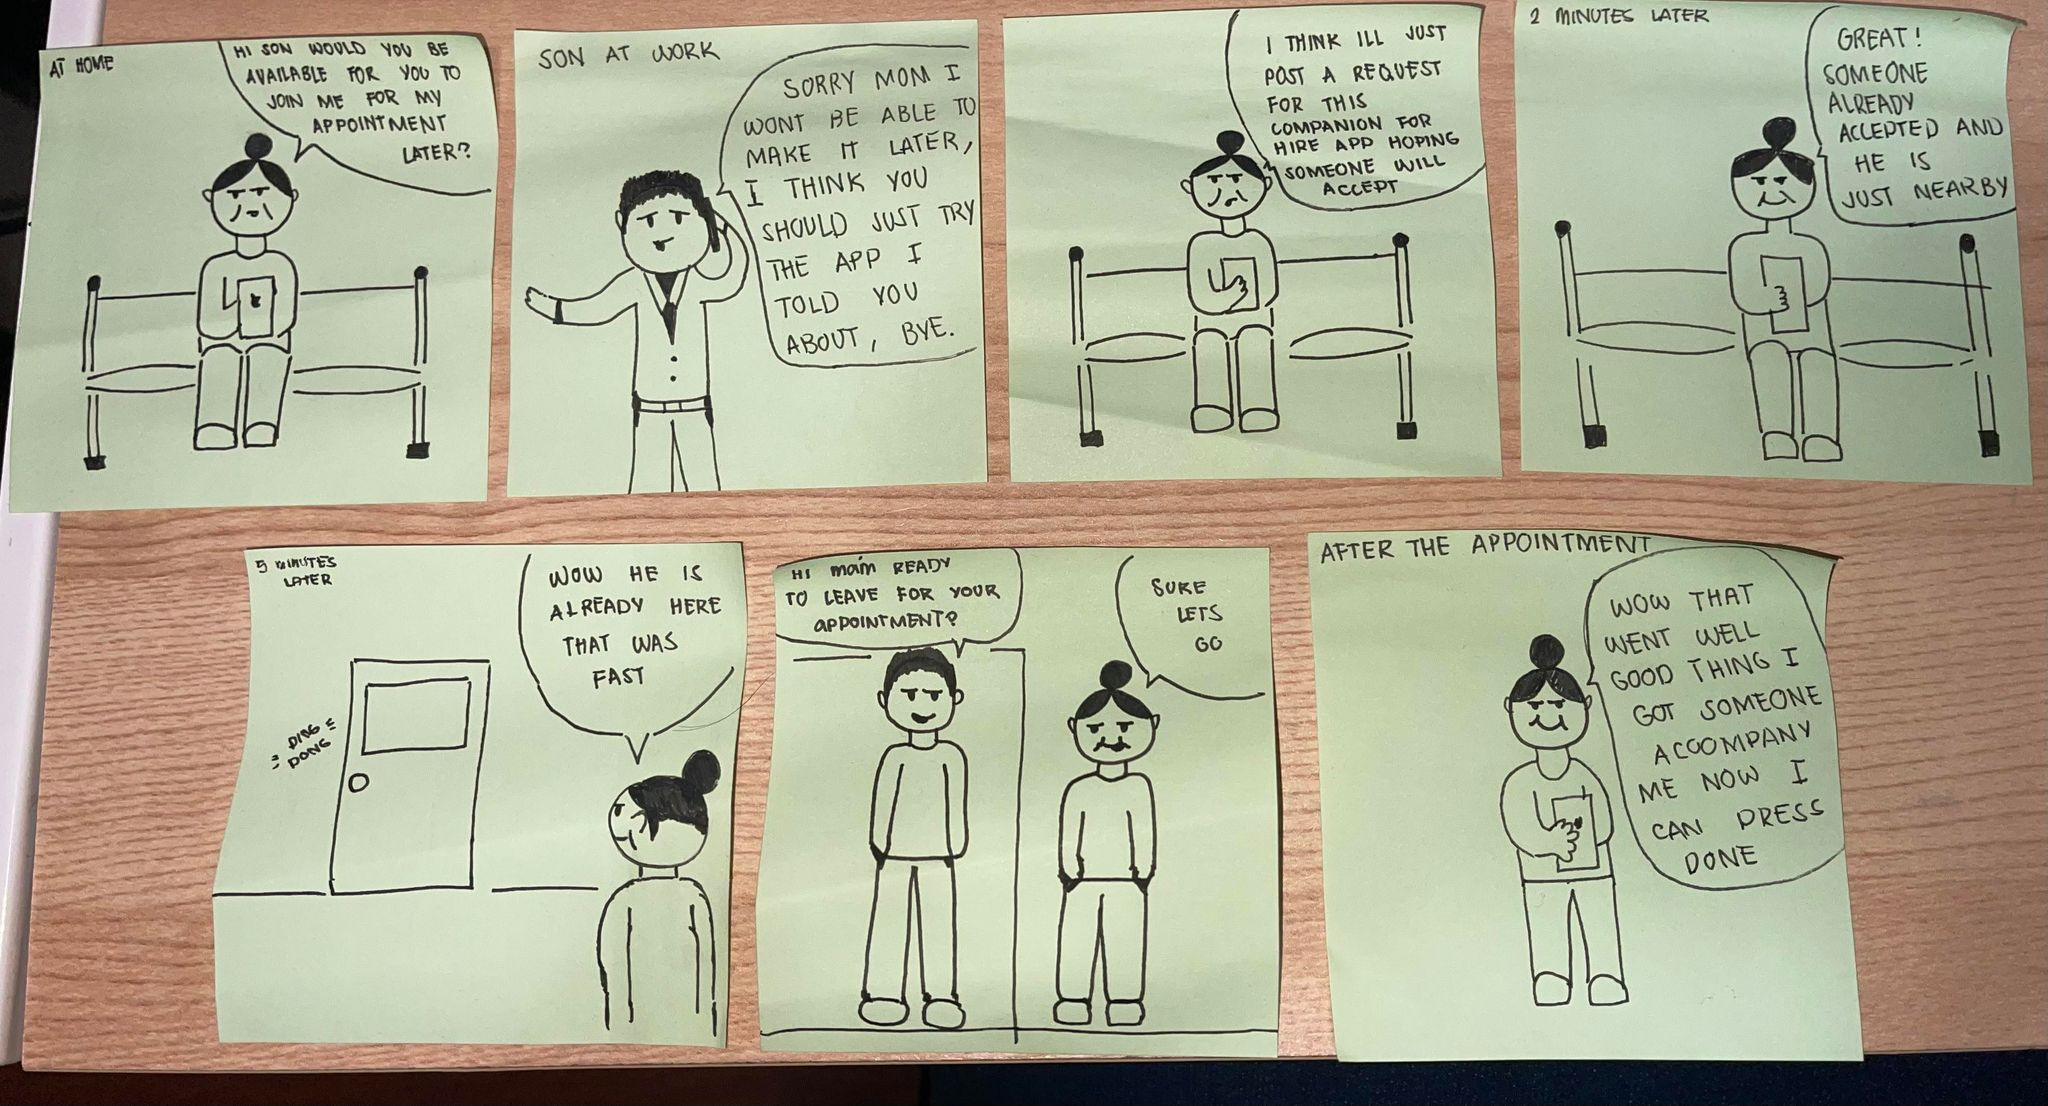 AT HOME
HI SON WOULD YOU BE
AVAILABLE FOR YOU TO
JOIN ME FOR MY
APPOINTMENT
LATER?
SON AT WORK
SORRY MOM I
WONT BE ABLE TO
MAKE IT LATER,
I THINK YOU
SHOULD JUST TRY
THE APP I
TOLD YOU
ABOUT, BYE.
I THINK ILL JUST
POST A REQUEST
FOR THIS
COMPANION FOR
HIRE APP HOPING
SOMEONE WILL
ACCEPT
2 MINUTES LATER
GREAT!
SOMEONE
ALREADY
ACCEPTED AND
HE IS
JUST NEARBY
5 MINUTES
LATER
WOW HE IS
ALREADY HERE
THAT WAS
FAST
DING
DONG
HI mam READY
TO LEAVE FOR YOUR
APPOINTMENT?
SURE
LETS
GO
AFTER THE APPOINTMENT
WOW THAT
WENT WELL
GOOD THING I
GOT SOMEONE
ACCOMPANY
ME NOW I
CAN PRESS
DONE